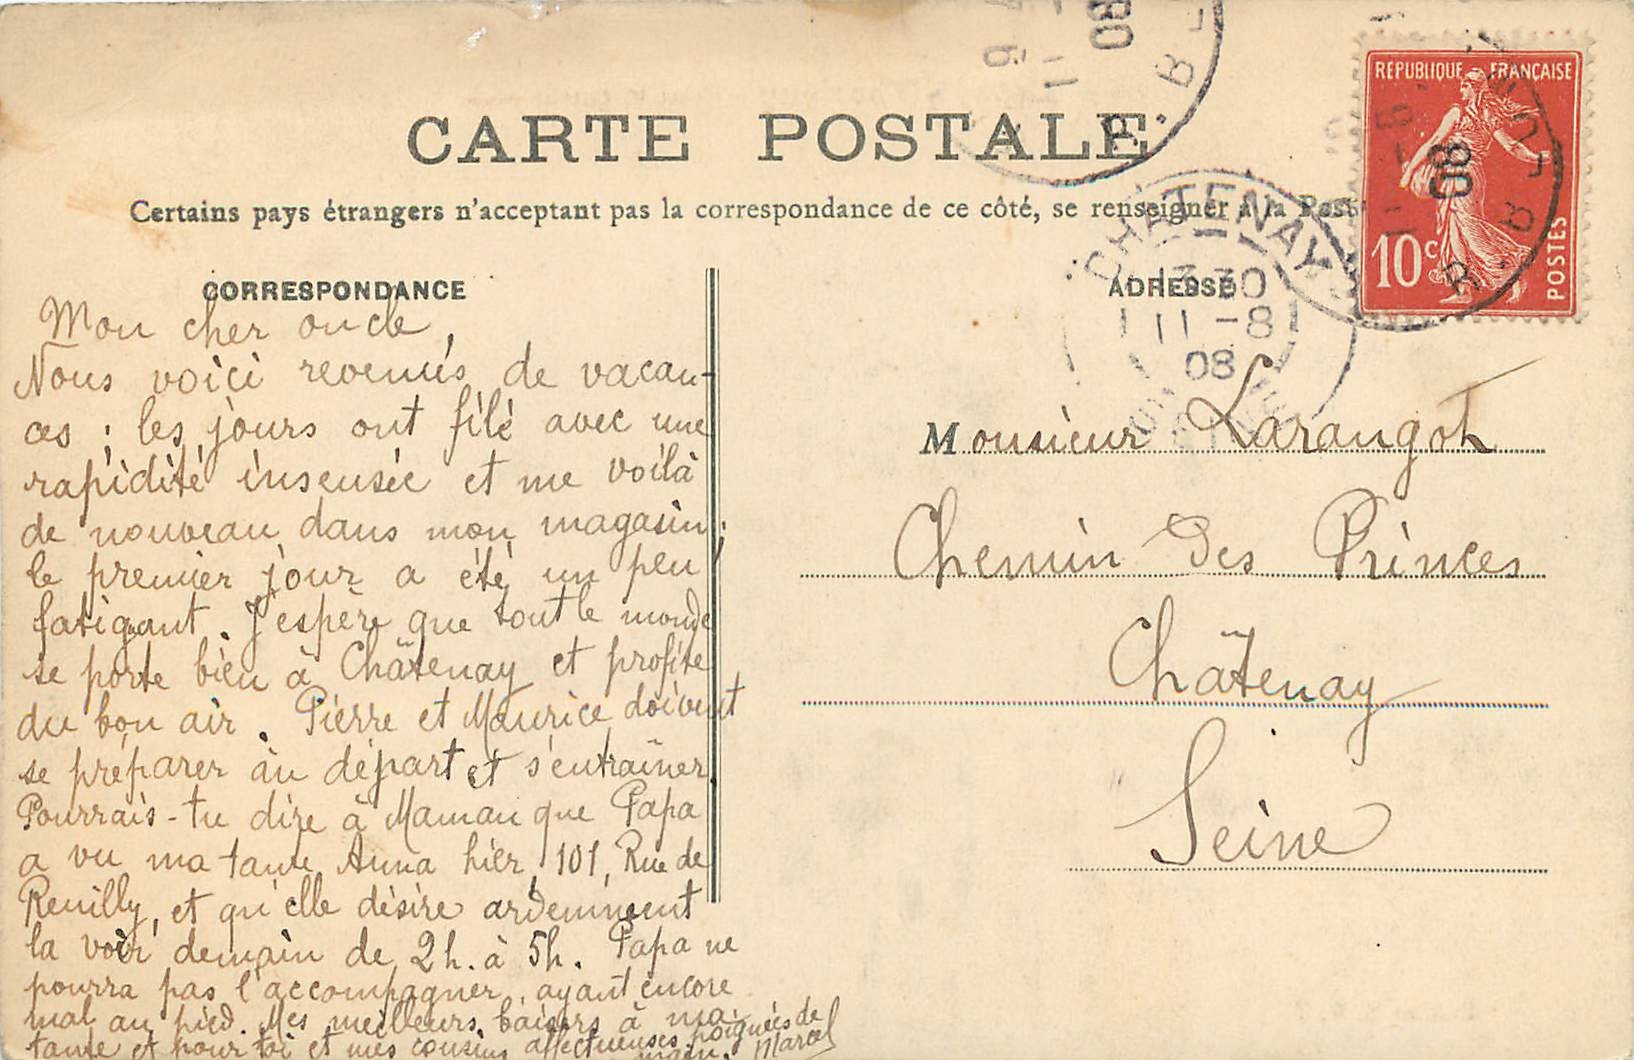 CARTE POSTALE
Certains pays étrangers n'acceptant pas la correspondance de ce côté, se renseigner à la Post
CORRESPONDANCE
Mon cher oncle,
Nous voici revenus de vacan-
ces ; les jours ont filé avec une
rapidité insensée et me voilà
de nouveau dans mon magasin ;
le premier jour a été un peu
fatigant. J'espère que tout le monde
se porte bien à Châtenay et profite
du bon air. Pierre et Maurice doivent
se préparer au départ et s'entraîner.
Pourrais-tu dire à Maman que Papa
a vu ma tante Anna hier, 101, Rue de
Reuilly, et qu'elle désire ardemment
la voir demain de 2h. à 5h. Papa ne
pourra pas l'accompagner, ayant encore
mal au pied. Mes meilleurs baisers à ma
tante et pour toi et mes cousins affectueuses poignées de
main. Marcel
ADRESSE
Monsieur Larangot
Chemin des Princes
Châtenay
Seine
REPUBLIQUE FRANÇAISE
10c
POSTES
CHATENAY
13 30
11 -8
08
9
11
08
R
R.
08
R
R